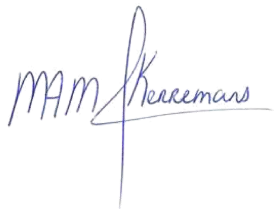 MAM Kerremans